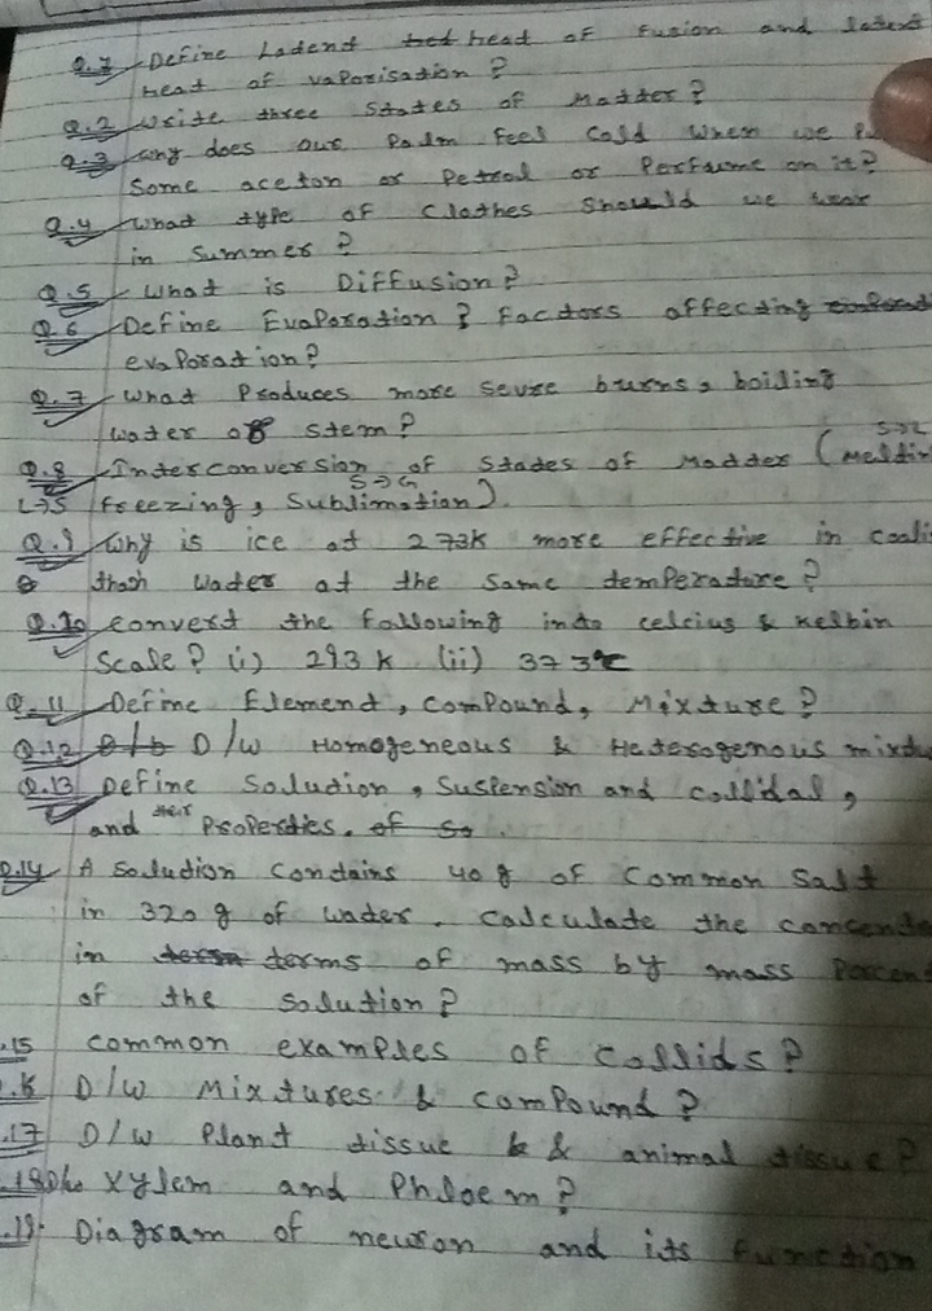 Q.1 Define Latent hed heat of fusion and latent
heat of vaporisation ?
Q.2 write three states of Matter ?
Q.3 why does our Palm feel cold when we
Some aceton or Petrol or Perfume on it ?
Q.4 What type of clothes should we wear
in summer ?
Q.5 What is Diffusion ?
Q.6 Define Evaporation ? Factors affecting
evaporation ?
Q.7 What Produces more sevre burns, boiling
water or stem ?
S→L
Q.8 Interconversion of States of Matter (Meltin
S→G
L→S freezing, Sublimation).
Q.9 Why is ice at 273K more effective in cooli
than water at the same temperature ?
Q.10 convert the following into celcius & kelbin
Scale ? (i) 293 K (ii) 373°C
Q.11 Define Element, compound, Mixture ?
Q.12 D/b D/W Homogeneous & Heterogenous mixtu
Q.13 Define Solution, Suspension and collidal,
and their Properties. of so.
Q.14 A solution contains 40 g of common Salt
in 320 g of water. calculate the concent
in terms of mass by mass Percen
of the solution ?
.15 common examples of collids ?
D/W Mixtures & compound ?
.17 D/W Plant tissue & & animal tissue ?
.18 Xylem and Phloem ?
Diagram of neuron and its function